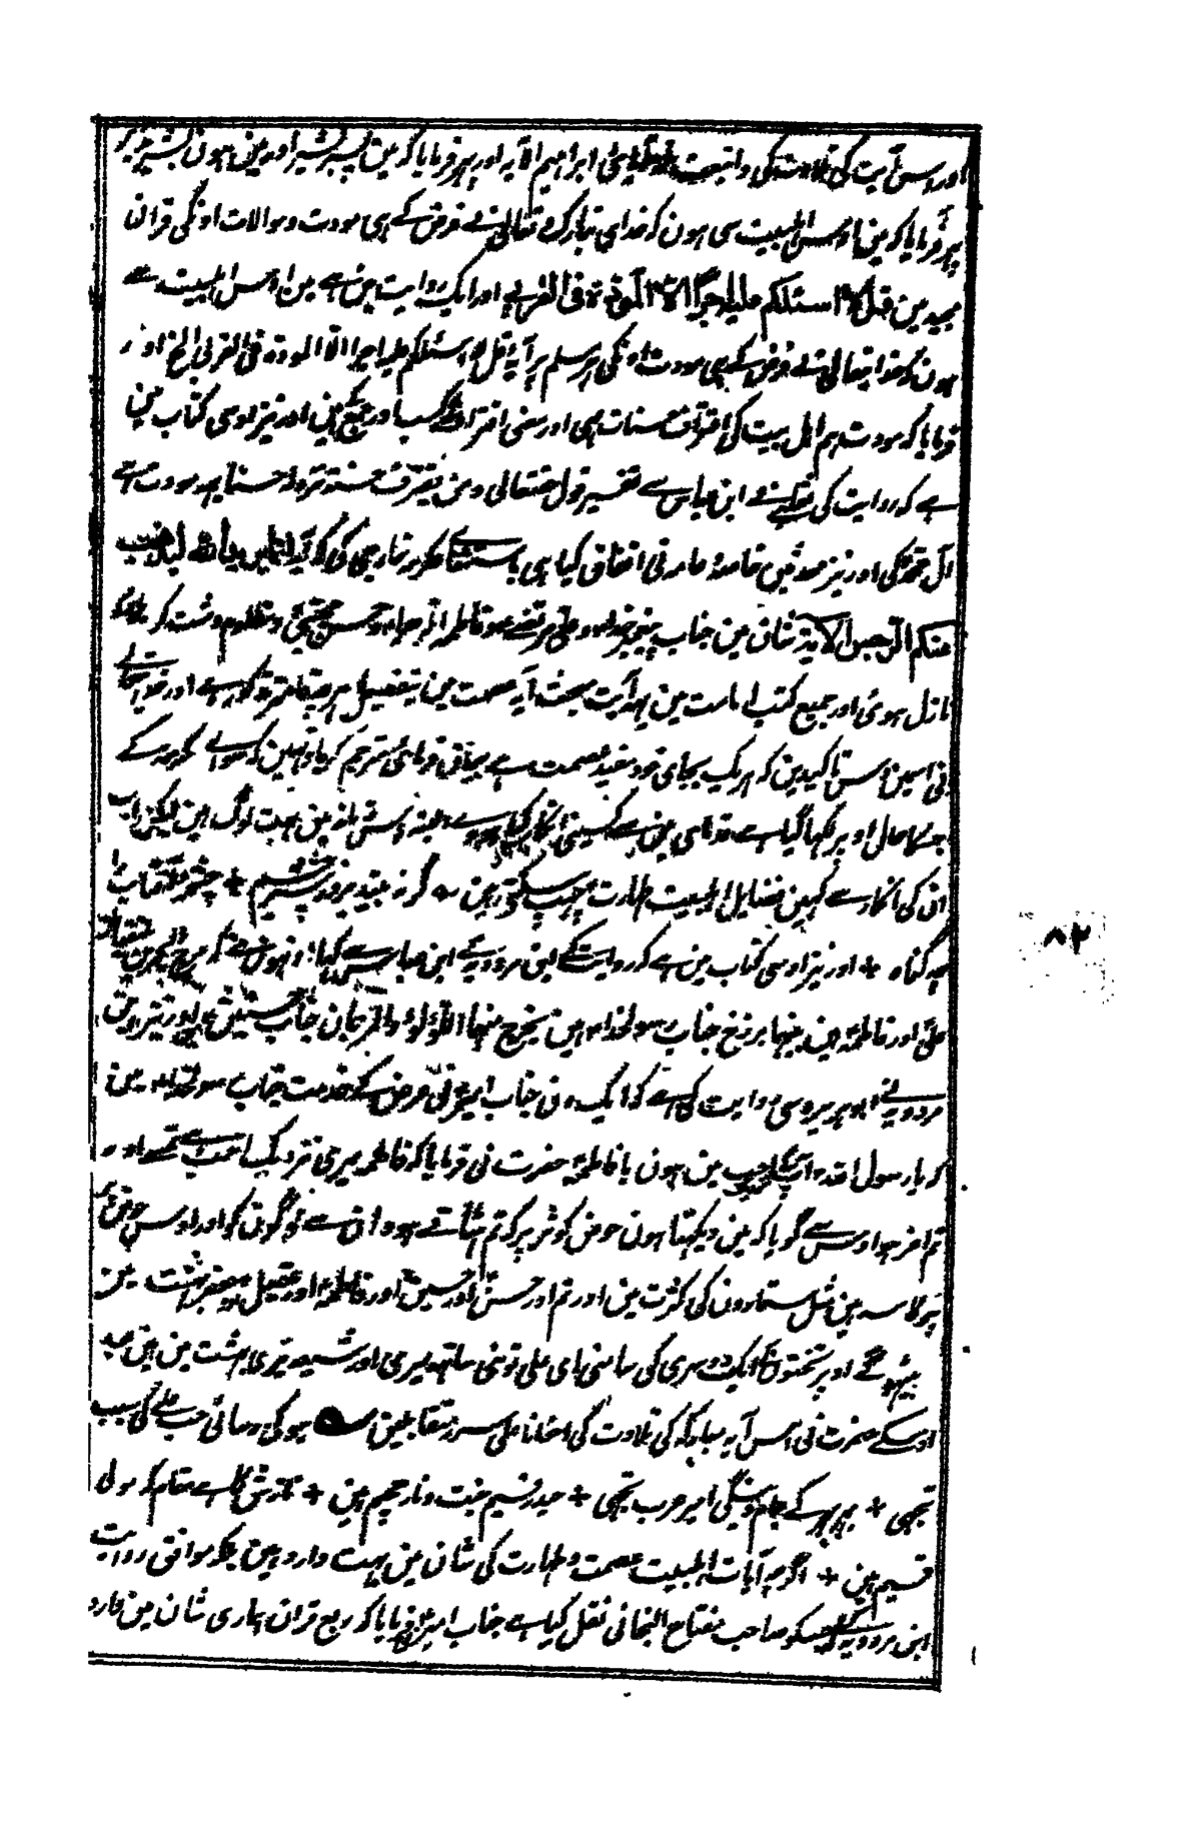 اور اس آیت کی تلاوت کی واتبعت ملة آبائی ابراہیم الآیہ اور پہر فرمایا کہ مین پسر بشیر اور مین ہون پسر نذیر
پہر فرمایا کہ مین اوس اہلبیت سی ہون کہ خدای تبارک و تعالیٰ نے فرض کے ہی مودت و موالات اونکی قران
مجید مین قل لا اسئلکم علیہ اجرا الا المودۃ فی القربی اور ایک روایت مین ہے مین اوس اہلبیت سے
ہون کہ خدا تعالی نے فرض کے ہی مودت اونکی ہر مسلم پر آیہ قل لا اسئلکم علیہ اجرا الا المودۃ فی القربی الخ اور
فرمایا کہ مودت ہم اہل بیت کی اقتراف حسنات ہی اور معنی اقتراف کسب اور جمع ہین اور نیز اوسی کتاب مین
ہے کہ روایت کی نے ابن عباس سے تفسیر قول حقتعالی ومن یقترف حسنۃ نزد لہ حسنا مودت ہے
آل محمد کی اور نیز محدثین خاصہ و عامہ نی اتفاق کیا ہی باستثنا عکرمہ خارجی کی کہ آیہ انما یرید اللہ لیذہب
عنکم الرجس الآیہ شان مین جناب پیغمبر خدا و علی مرتضے و فاطمہ زہرا و حسن مجتبی و مظلوم دشت کربلا کے
نازل ہوئی اور جمیع کتب امامت مین یہہ آیت مبحث آیہ عصمت مین بتفصیل ہے اور حقتعالے
نی اسمین اس تاکیدین کہ ہریک بجای خود مفید عصمت ہے فرمائی مترجم کہتا نہین کہ سوای عکرمہ کے
جسکا حال اوپر لکہا گیا ہے قدما مین سے کسینی انکار کیا ہے البتہ اس زمانہ مین بہت لوگ ہین لیکن اب
ان کی انکار سے کہین فضایل اہلبیت طہارت چہپ سکتے ہین ؎ گر نہ بیند بروز شپرہ چشم + چشمہ آفتاب را
چہ گناہ + اور نیز اوسی کتاب مین ہے کہ روایت کے ابن مردویہ نے ابن عباس سے کہا اونہون نے کہ مرج البحرین یلتقیان
علی اور فاطمہ ہین بینہما برزخ جناب رسولخدا ہین یخرج منہما اللؤلؤ والمرجان جناب حسنین اور نیز ابن
مردویہ نے ابو ہریرہ سی روایت کی ہے کہ ایک دن جناب امیر نی عرض کے خدمت جناب رسولخدا مین
کہ یا رسول اللہ آپکا محبوب مین ہون یا فاطمہ حضرت نی فرمایا کہ فاطمہ میری نزدیک احب ہے تم سے اور
تم اعز ہو اوس سے گویا کہ مین دیکہتا ہون حوض کوثر پر کہ تم ہٹاتے ہو وان سے لوگون کو اور اوس حوض
پر کاسہ ہین مثل ستارون کی کثرت مین اور تم اور حسن اور حسین اور فاطمہ اور عقیل و جعفر بہشت مین
بیٹہوگے اوپر تختون کے ایک دوسری کی سامنی یا علی تو ہی ساتہہ میری اور شیعہ تیری بہشت مین ہین بعد
اوسکے حضرت نی اس آیہ مبارکہ کی تلاوت کی اخوانا علی سرر متقابلین ؎ ہوگی رسائی حب علی کی سبب
تجہی + بہر بہر کے جام دینگے امیر عرب تجہی + حیدر قسیم جنت و نار جحیم ہین + سے مقام کہ مولی
قسیم ہین + اگرچہ آیات اہلبیت عصمت و طہارت کی شان مین بہت وارد ہین بلکہ موافق روایت
ابن مردویہ کے جسکو صاحب مفتاح النجا نی نقل کیا ہے جناب امیر نی فرمایا کہ ربع قران ہماری شان مین وارد
۸۲